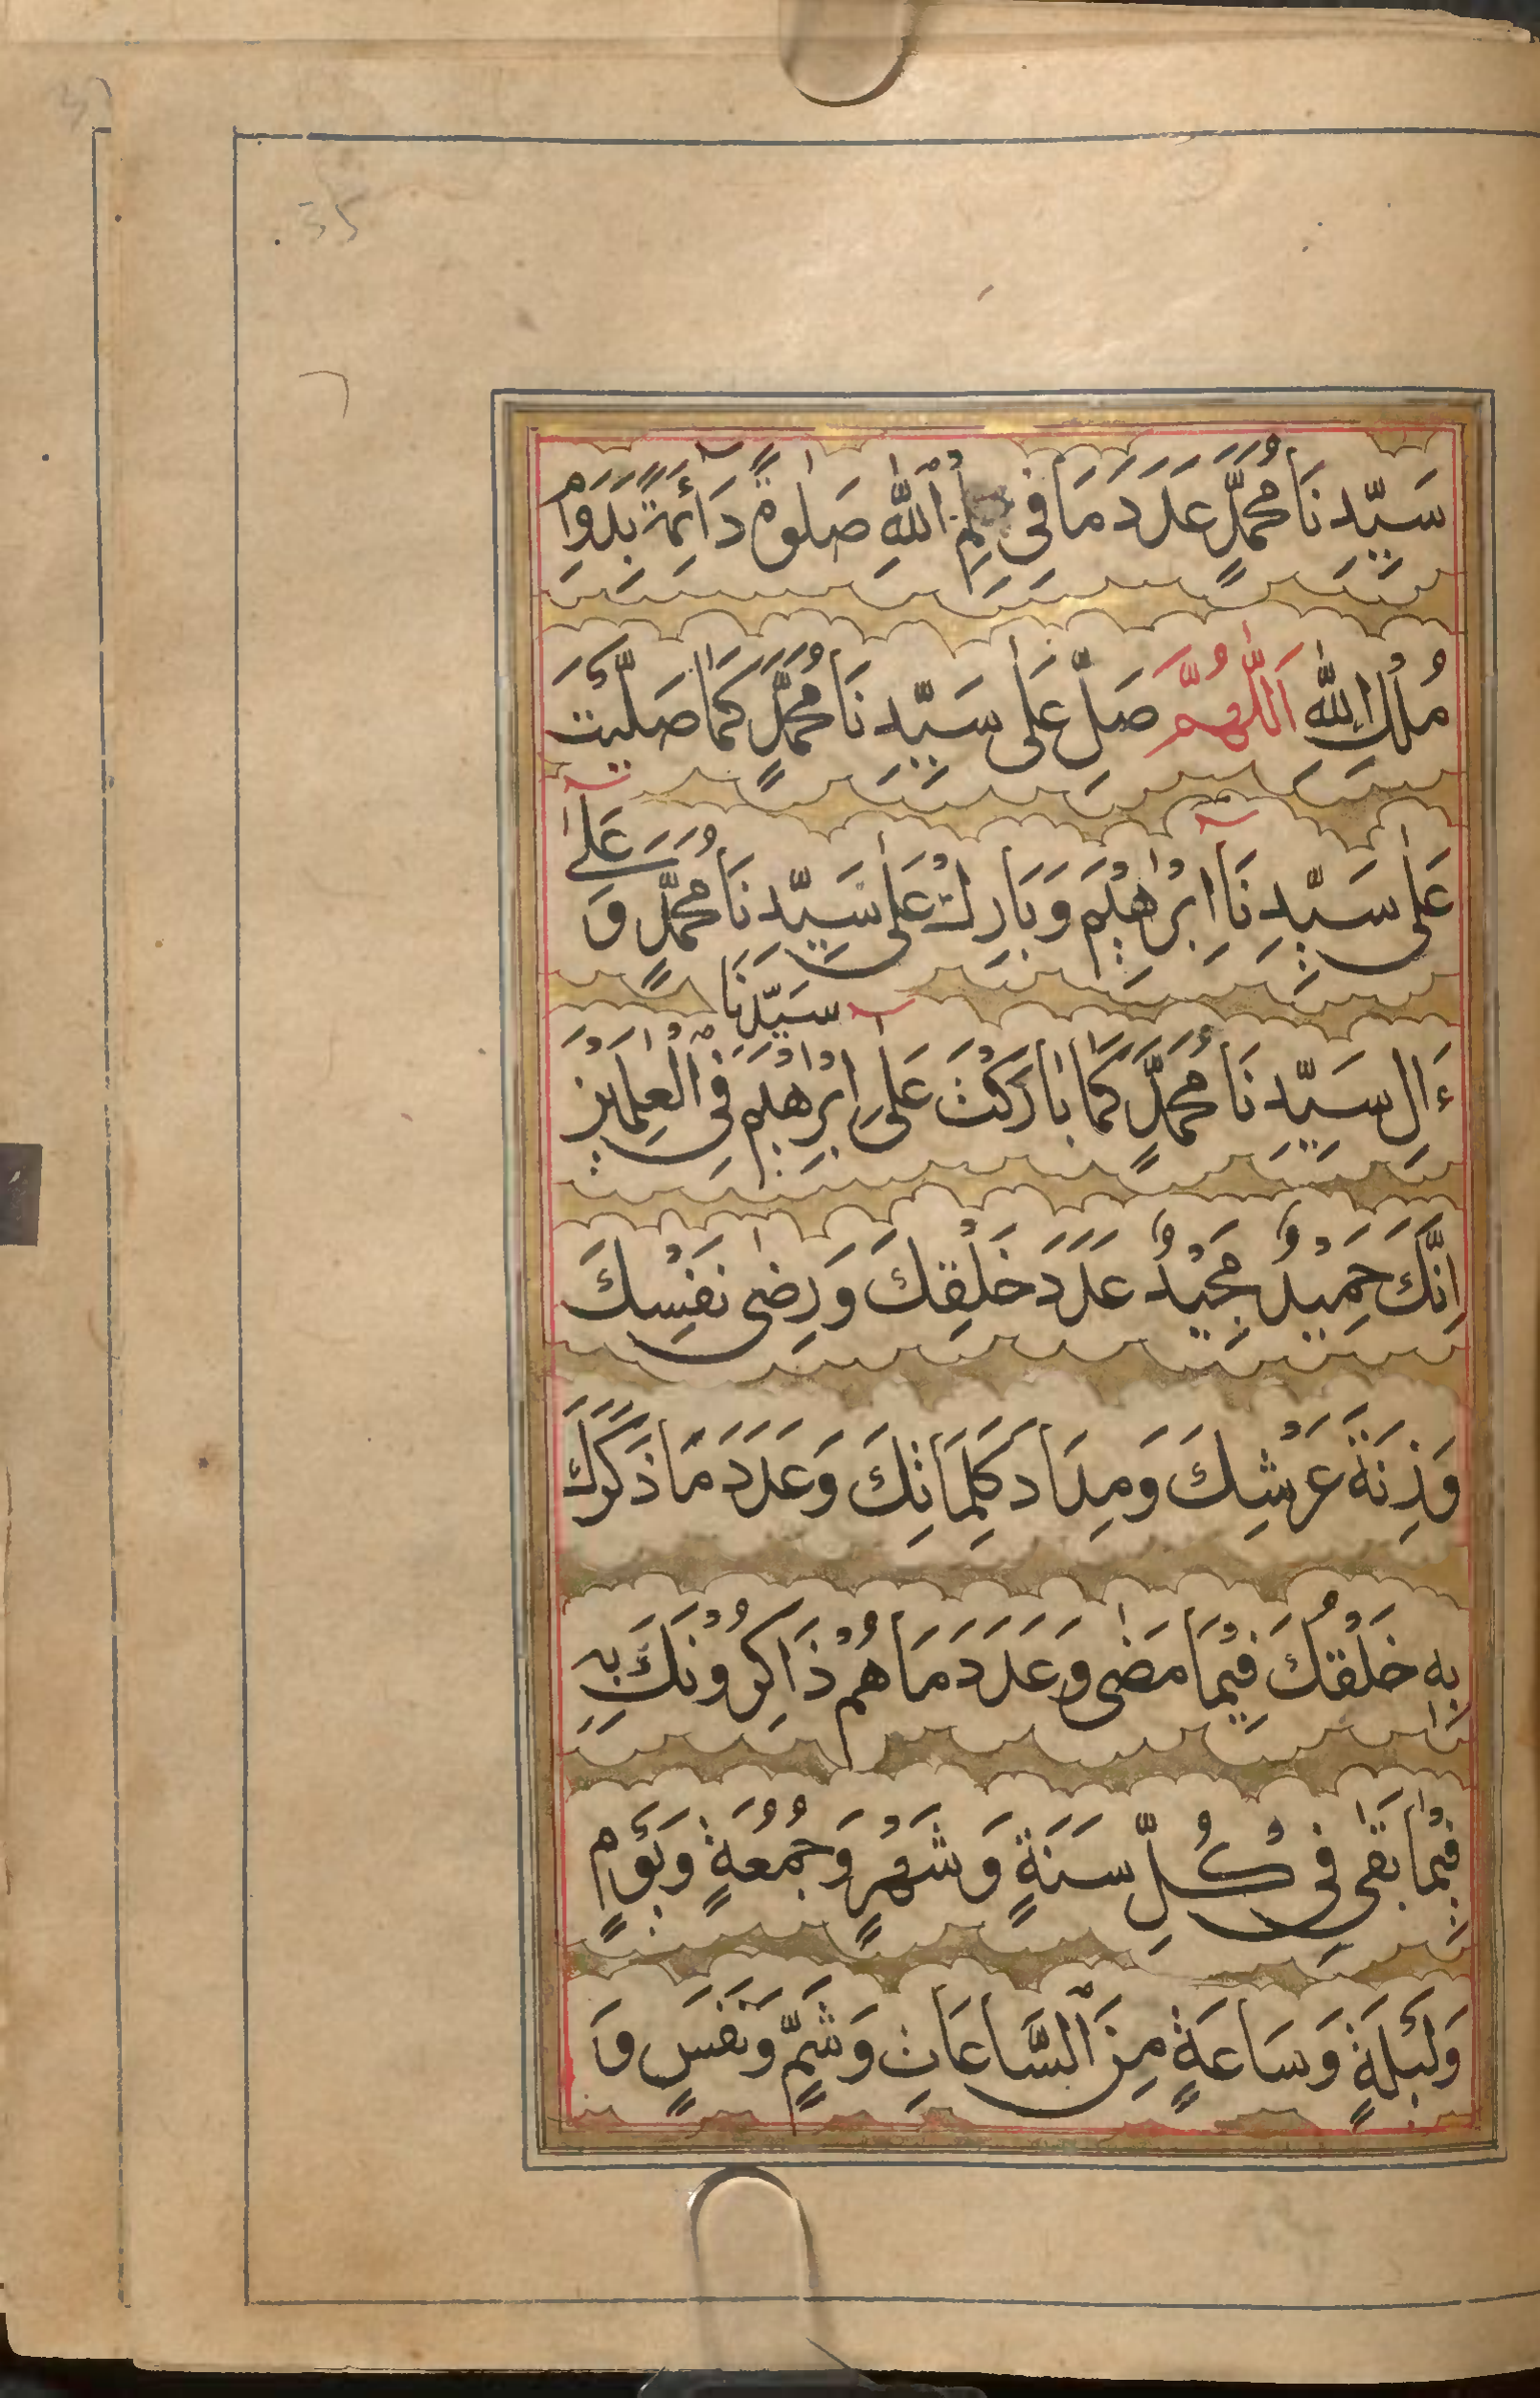 35
سَيِّدِنَا مُحَمَّدٍ عَدَدَ مَا فِي عِلْمِ ٱللّٰهِ صَلٰوةً دَآئِمَةً بِدَوَامِ
مُلْكِ اللّٰهِ اَللّٰهُمَّ صَلِّ عَلٰى سَيِّدِنَا مُحَمَّدٍ كَمَا صَلَّيْتَ
عَلٰى سَيِّدِنَآ اِبْرٰهِيْمَ وَبَارِكْ عَلٰى سَيِّدِنَا مُحَمَّدٍ وَ عَلٰٓى
ءَالِ سَيِّدِنَا مُحَمَّدٍ كَمَا بَارَكْتَ عَلٰٓى سَيِّدِنَا اِبْرٰهِيْمَ فِي ٱلْعٰلَمِيْنَ
اِنَّكَ حَمِيْدٌ مَجِيْدٌ عَدَدَ خَلْقِكَ وَرِضٰى نَفْسِكَ
وَزِنَةَ عَرْشِكَ وَمِدَادَ كَلِمَاتِكَ وَعَدَدَ مَا ذَكَرَكَ
بِهٖ خَلْقُكَ فِيْمَا مَضٰى وَعَدَدَ مَا هُمْ ذَاكِرُوْنَكَ بِهٖ
فِيْمَا بَقٰى فِي كُلِّ سَنَةٍ وَشَهْرٍ وَجُمُعَةٍ وَيَوْمٍ
وَلَيْلَةٍ وَسَاعَةٍ مِنَ ٱلسَّاعَاتِ وَشَمٍّ وَنَفَسٍ وَ